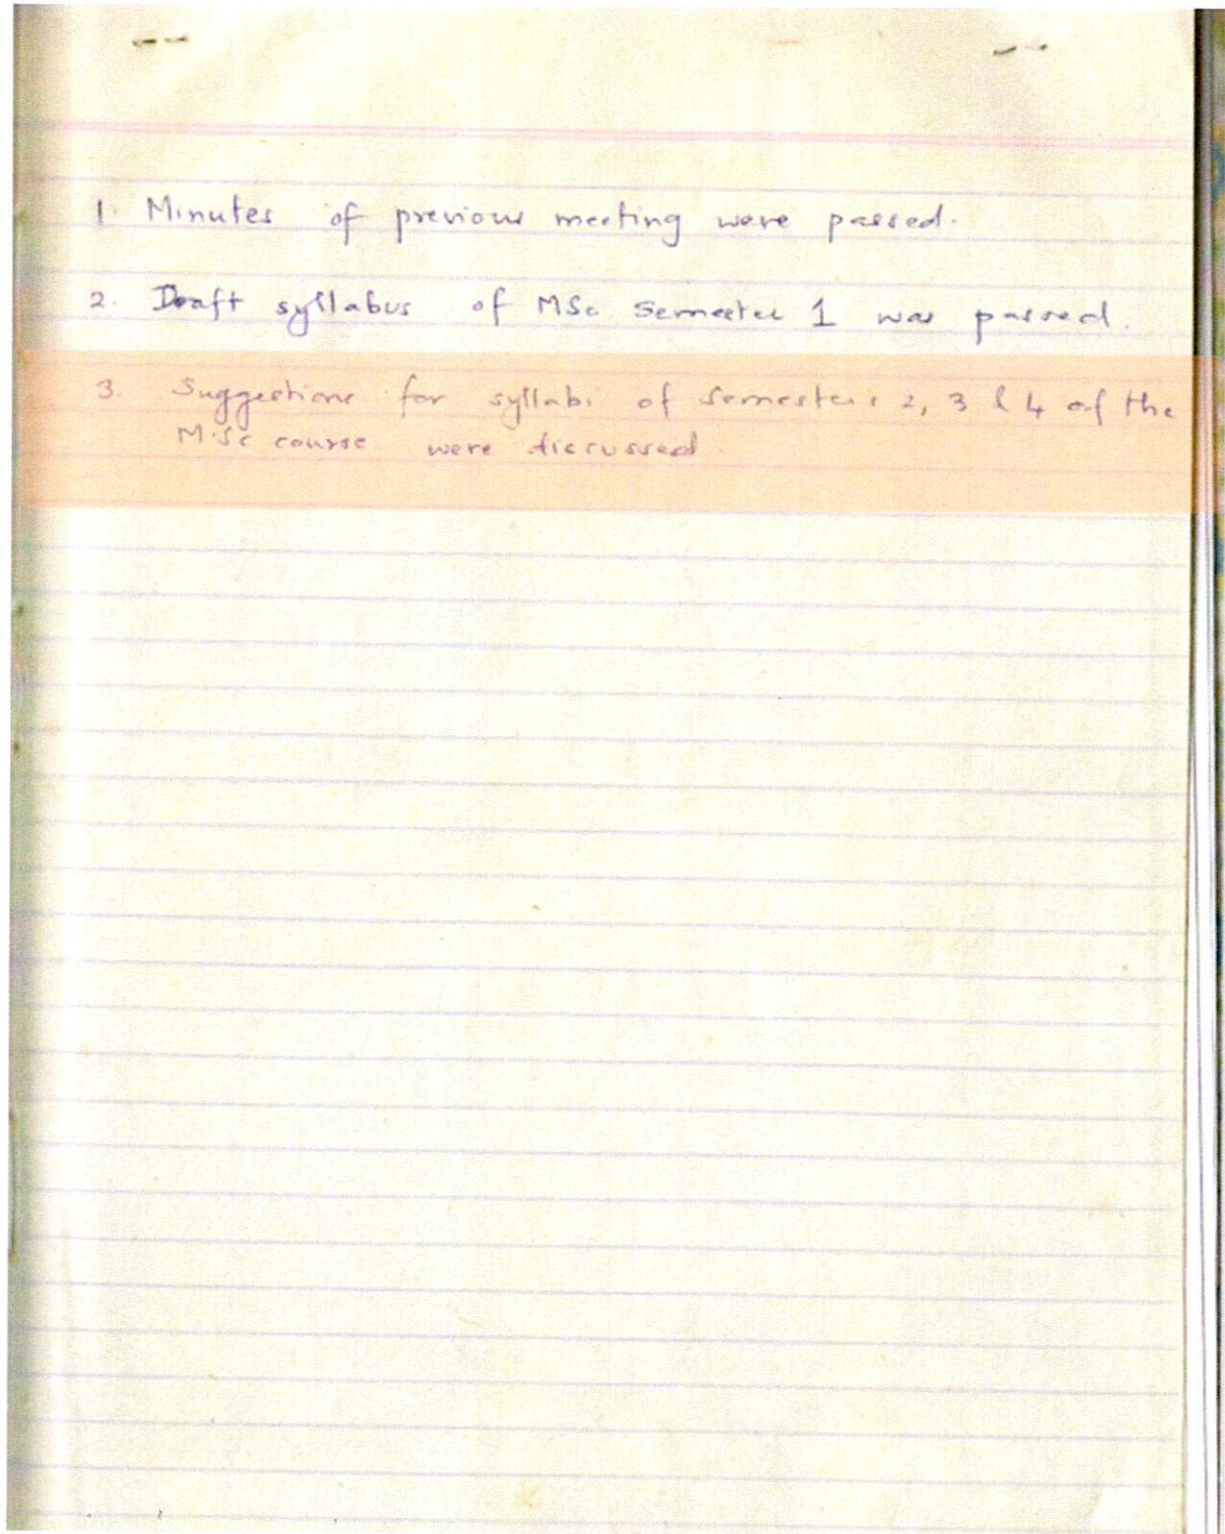 1. Minutes of previous meeting were passed.
2. Draft syllabus of MSc Semester 1 was passed.
3. Suggestions for syllabi of semesters 2, 3 & 4 of the
MSc course were discussed.